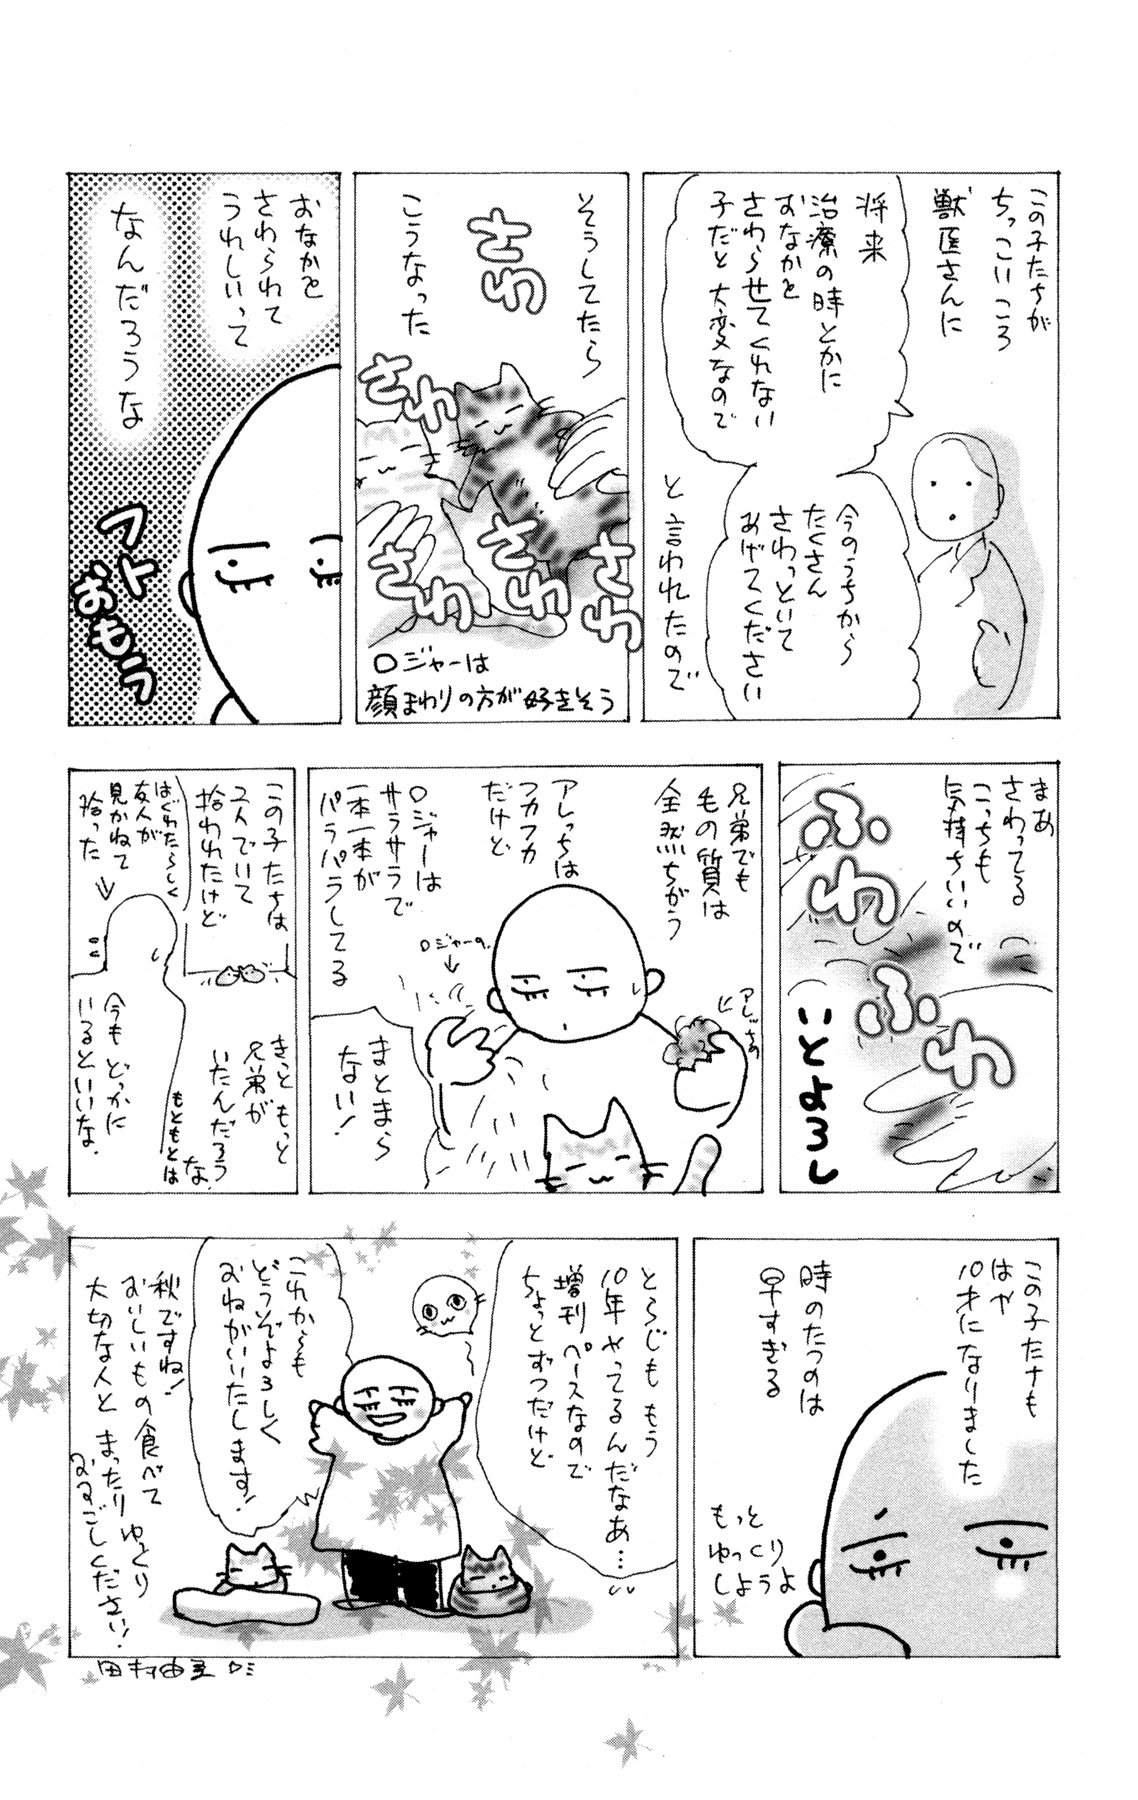 この子たちが
ちっこいころ
獣医さんに
将来
治療の時とかに
おなかを
さわらせてくれない
子だと大変なので
今のうちから
たくさん
さわっといて
あげてください
と言われたので
そうしてたら
さわ
こうなった
さわ
さわ
さわ
さわ
ロジャーは
顔まわりの方が好きそう
おなかを
さわられて
うれしいって
なんだろうな
フト
おもう
まあ
さわってる
こっちも
気持ちいいので
ふわ
ふわ
いとよろし
兄弟でも
毛の質は
全然ちがう
アレっちは
フカフカ
だけど
ロジャーは
サラサラで
一本一本が
パラパラしてる
アレっちの
ロジャーの
まとまら
ない!
この子たちは
2人でいて
拾われたけど
はぐれたらしく
友人が
見かねて
拾った
きっともっと
兄弟が
いたんだろうな
もともとは
今もどっかに
いるといいな
この子たちも
はや
10才になりました
時のたつのは
早すぎる
もっと
ゆっくり
しようよ
とらじももう
10年やってるんだなあ…
増刊ペースなので
ちょっとずつだけど
これからも
どうぞよろしく
おねがいいたします!
秋ですね!
おいしいもの食べて
大切な人とまったりゆっくり
おすごしください!
田村由美